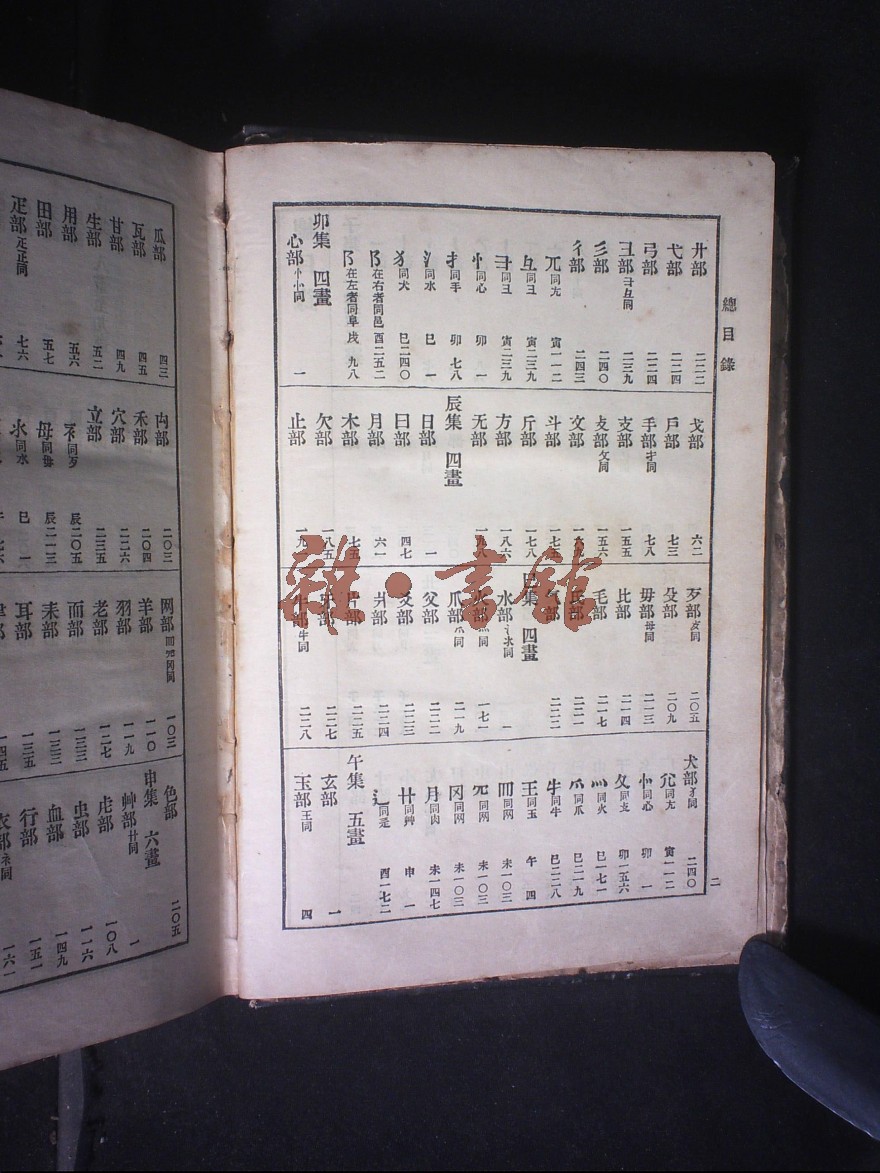 總目錄
二
廾部 二二二
弋部 二二四
弓部 二二四
彐部彑彐同 二三九
彡部 二四〇
彳部 二四三
兀同尢 寅一一二
彑同彐 寅二三九
彐同彐 寅二三九
忄同心 卯 一
扌同手 卯 七八
氵同水 巳 一
犭同犬 巳二四〇
阝在右者同邑 酉二五二
阝在左者同阜 戌 九八
卯集 四畫
心部忄㣺同 一
戈部 六二
戶部 七三
手部扌同 七八
支部 一五五
攴部攵同 一五六
文部
斗部
斤部 一七八
方部 一八六
无部
辰集 四畫
日部 一
曰部 四七
月部 六一
木部 七五
欠部 一八五
止部
歹部歺同 二〇五
殳部 二〇九
毋部母同 二一三
比部 二一四
毛部 二一七
氏部 二二一
气部 二二二
巳集 四畫
水部氵氺同 一
火部灬同 一七一
爪部爫同 二一九
父部 二二二
爻部 二二三
爿部 二二四
片部 二二五
牙部 二二七
牛部牜同 二二八
犬部犭同 二四〇
尣同尢 寅一一二
㣺同心 卯 一
攵同攴 卯一五六
灬同火 巳一七一
爫同爪 巳二一九
牜同牛 巳二二八
王同玉 午 四
罒同网 未一〇三
同网 未一〇三
同网 未一〇三
月同肉 未一四七
艹同艸 申 一
辶同辵 酉一七二
午集 五畫
玄部 一
玉部王同 四
瓜部 四三
瓦部 四五
甘部 四九
生部 五二
用部 五六
田部 五七
疋部𤴔正同 七六
禸部 二〇三
禾部 二〇四
穴部 二二六
立部 二三五
歺同歹 辰二〇五
母同毋 辰二一三
氺同水 巳 一
网部 一〇三
羊部 一一〇
羽部 一一九
老部 一二七
而部 一三二
耒部 一三三
耳部 一三五
色部 二〇五
申集 六畫
艸部艹同 一
虍部 一〇八
虫部 一一六
血部 一四九
行部 一五一
衣部衤同 一六一
雜·書館